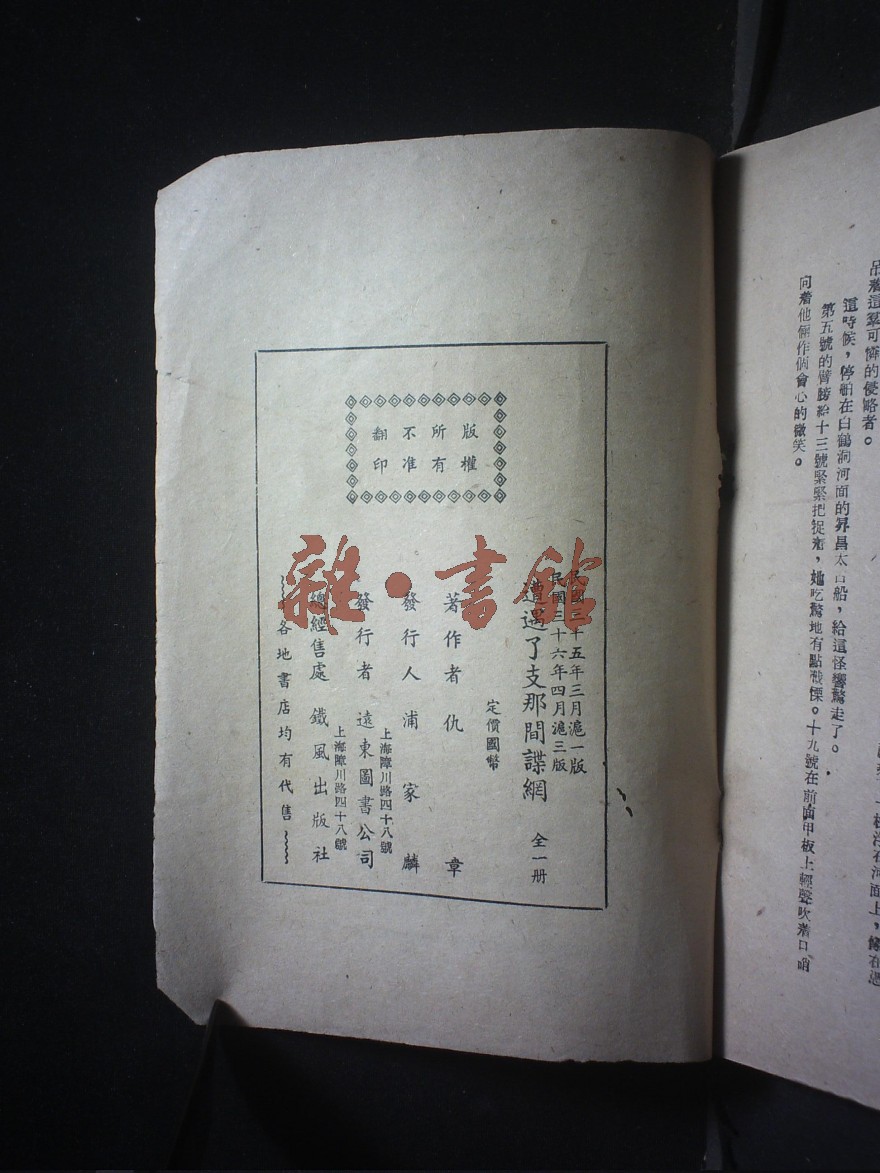 向着他倆作個會心的微笑。
第五號的臂膀給十三號緊緊把捉着，她吃驚地有點戰慄。十九號在前面甲板上輕聲吹着口哨
這時候，停舶在白鶴洞河面的昇昌太古船，給這怪響驚走了。
吊着這羣可憐的侵略者。
版權
所有
不准
翻印
民國三十五年三月滬一版
民國三十六年四月滬三版
遭遇了支那間諜網 全一册
定價國幣
著作者 仇章
發行人 浦家麟
上海漳川路四十八號
發行者 遠東圖書公司
上海漳川路四十八號
總經售處 鐵風出版社
各地書店均有代售
雜·書館